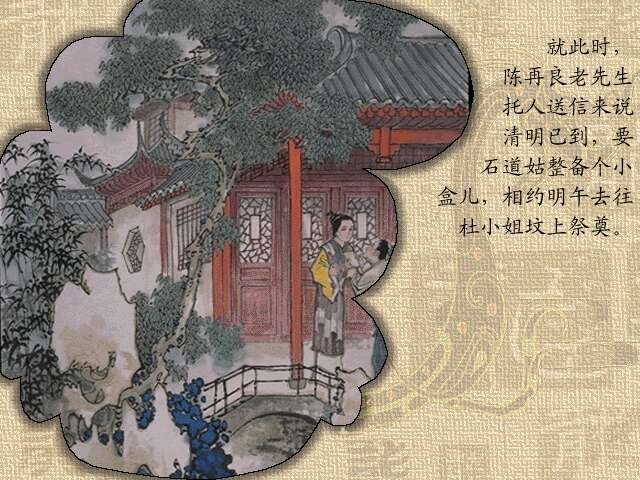 就此时，
陈再良老先生
托人送信来说
清明已到，要
石道姑整备个小
盒儿，相约明午去往
杜小姐坟上祭奠。